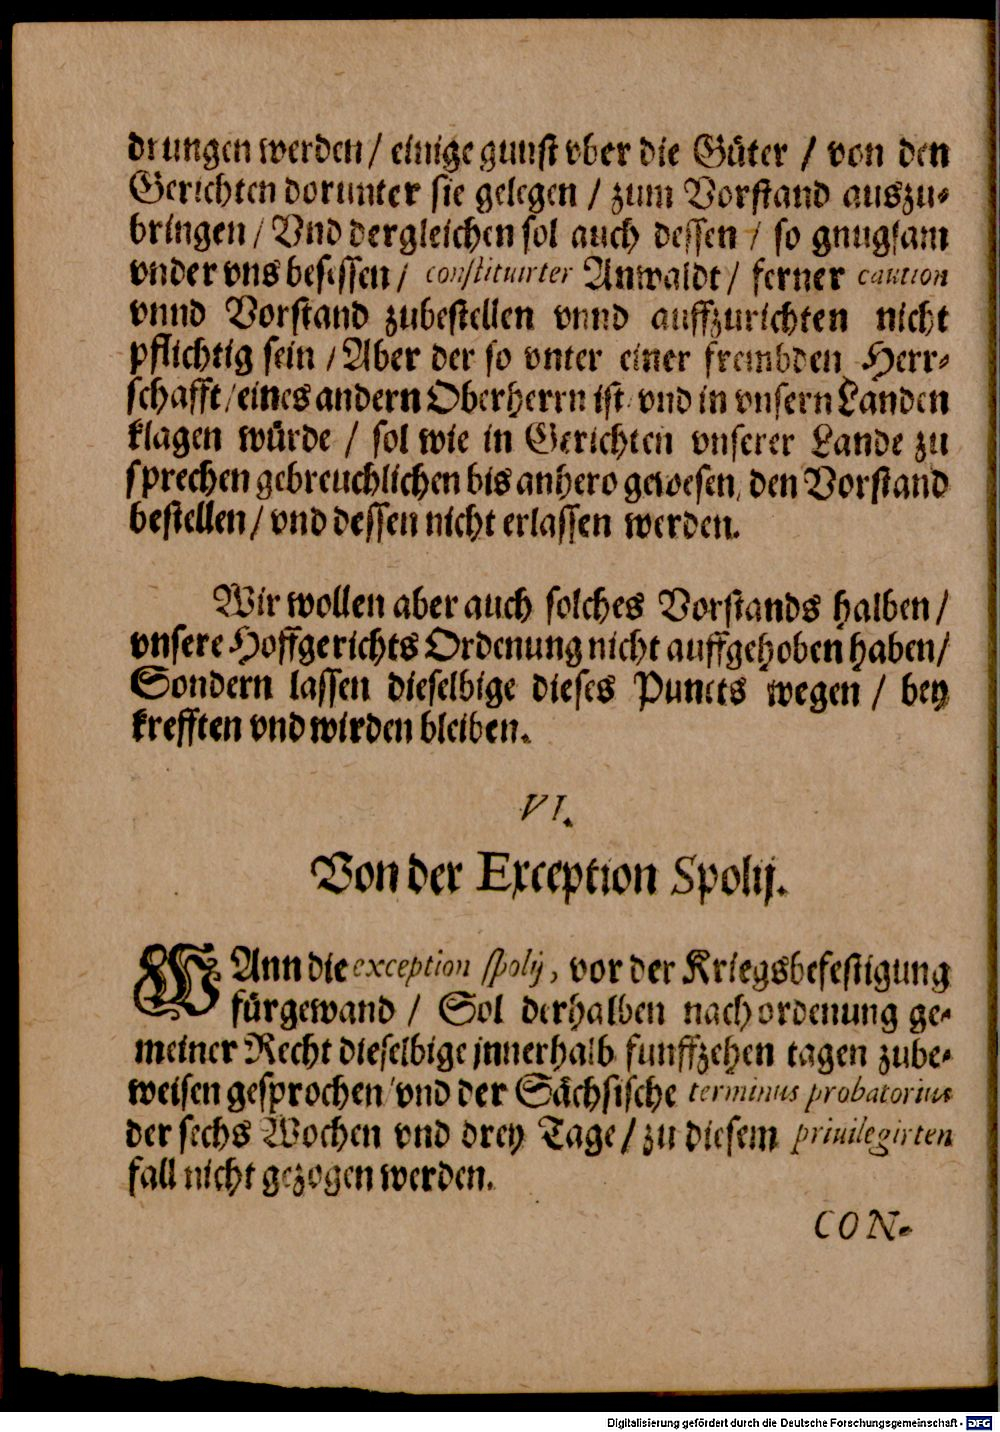 drungen werden / einige gunst vber die Güter / von den
Gerichten dorunter sie gelegen / zum Vorstand auszu-
bringen / Vnd dergleichen sol auch dessen / so gnugsam
vnder vns besessen / constituirter Anwaldt / ferner caution
vnnd Vorstand zubestellen vnnd auffzurichten nicht
pflichtig sein / Aber der so vnter einer frembden Herr-
schafft / eines andern Oberherrn ist / vnd in vnsern Landen
klagen würde / sol wie in Gerichten vnserer Lande zu
sprechen gebreuchlichen bis anhero gewesen, den Vorstand
bestellen / vnd dessen nicht erlassen werden.
Wir wollen aber auch solches Vorstands halben /
vnsere Hoffgerichts Ordenung nicht auffgehoben haben /
Sondern lassen dieselbige dieses Puncts wegen / bey
krefften vnd wirden bleiben.
VI.
Von der Exception Spolij.
WAnn die exception spolij, vor der Kriegsbefestigung
fürgewand / Sol derhalben nach ordenung ge-
meiner Recht dieselbige jnnerhalb funffzehen tagen zube-
weisen gesprochen / vnd der Sächsische terminus probatorius
der sechs Wochen vnd drey Tage / zu diesem priuilegirten
fall nicht gezogen werden.
CON-
Digitalisierung gefördert durch die Deutsche Forschungsgemeinschaft - DFG